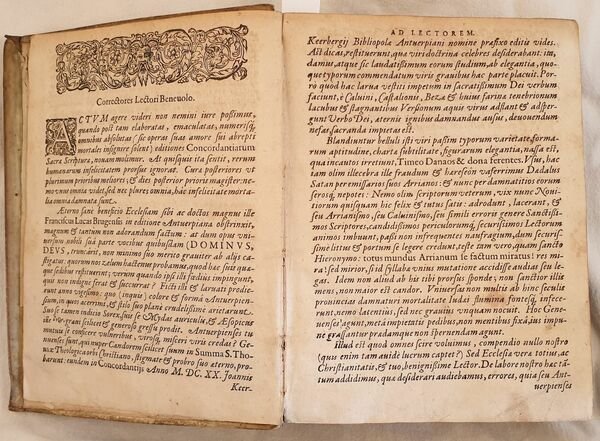 Correctores Lectori Beneuolo.
ACTVM agere videri non nemini iure possimus,
quando post tam elaboratas, emaculatas, numerisq́;
omnibus absolutas (sic operas suas amore sui abrepti
mortales insignire solent) editiones Concordantiarum
Sacræ Scripturæ, nouam molimur. At quisquis ita sentit, rerum
humanarum infelicitatem prorsus ignorat. Curæ posteriores vt
plurimum prioribus meliores; & dies posterior prioris magister: ne-
mo vnus omnia videt, sed nec plures omnia, hac infelicitate morta-
lia omnia damnata sunt.
Æterno sane beneficio Ecclesiam sibi ac doctos magnus ille
Franciscus Lucas Brugensis in editione Antuerpiana obstrinxit,
magnum & tantum non adorandum factum: at dum opus vni-
uersum nobis suâ parte vocibus quibusdam (DOMINVS,
DEVS, truncarit, non minimo suo merito grauiter ab alijs ca-
stigatus:
quorum nos zelum hactenus probamus, quod hac suæ quæ-
que sedibus restituerint; verum quando ipsi
qui non indignè ferat & succurrat? Fictili & laruati prodie-
runt anno vigesimo: quo (iniquo) colore & formâ Antuerpien-
sium, in quem acerrimè, & stilo suo planè crudelissimè arietarunt.
Suo se tamen indicio Sorex, suis se Mydas auriculis, & Æsopicus
ille
mutuò se conscire vulneribus, virosq́; miseri viris credas? Ge-
nuenses sunt, qui nuper Candorem scilicet suum in Summa S. Tho-
mæ Theologicæ orbi Christiano, stigmate & probro suo æterno, pro-
barunt: eundem in Concordantijs Anno M. DC. XX. Joannis
Keer-
AD LECTOREM.
Keerbergij Bibliopolæ Antuerpiani nomine præfixo editis vides.
Ast dicas, restituerunt, quæ viri doctrinâ celebres desiderabant: ita,
damus atque sic laudatissimum eorum studium, ab elegantia, quo-
que typorum commendatum viris grauibus hac parte placuit. Por-
rò quod hac larua vestiti impetum in sacratissimum Dei verbum
faciunt, è Caluini, Castalionis, Bezæ & huius farinæ tenebrionum
lacubus & stagnantibus Versionum aquis virus adflant & adsper-
gunt Verbo Dei, æternis ignibus damnandus ausus, deuouendum
nefas, sacranda impietas est.
Blandiuntur bellulis isti viri passim typorum varietate, forma-
rum aptitudine, charta subtilitate, figurarum elegantiâ, nassa est,
qua incautos irretiunt, Timeo Danaos & dona ferentes. Vsus, hac
iam olim illecebrâ ille fraudum & hæreseωn vaferrimus Dædalus
Satan peremissarios suos Arrianos: & nunc per damnatitios eorum
serosq́; nepotes: Nemo olim scriptorum veterum, vix nunc Noui-
tiorum quisquam hic felix & tutus satis: adrodunt, lacerant, &
seu Arrianismo, seu Caluinismo, seu simili errorum genere Sanctissi-
mos Scriptores, candidissimis periculorumq́; securissimos Lectorum
animos imbuunt, passi non infrequentes naufragium, dum securis-
simè litus & portum se legere credunt, teste tam vero, quam sancto
Hieronymo: totus mundus Arrianum se factum miratus: res mi-
ra: sed mirior, si id syllaba vnius mutatione accidisse audias seu le-
gas. Idem non aliud ab his tibi prorsus sponde; non sanctior illis
mens, non maior est candor. Vniuersa non multis ab hinc seculis
prouincias damnaturi mortalitate Iudæi flumina fontesq́; infece-
runt, nemo latentius, sed nec grauius vnquam nocuit. Hoc Genè-
uenses agunt, metâ impietatis pedibus, non mentibus fixâ, ius impu-
nè grassantur prædamque non spernendam agunt.
Illud est quod omnes scire voluimus, compendio nullo nostro
(quis enim tam auidè lucrum captet?) Sed Ecclesiæ vera totius, ac
Christianitatis, & tuo, benignissime Lector. De labore nostro hac tâ-
tum addidimus, quæ desiderari audiebamus, errores, quia seu Ant-
uerpienses